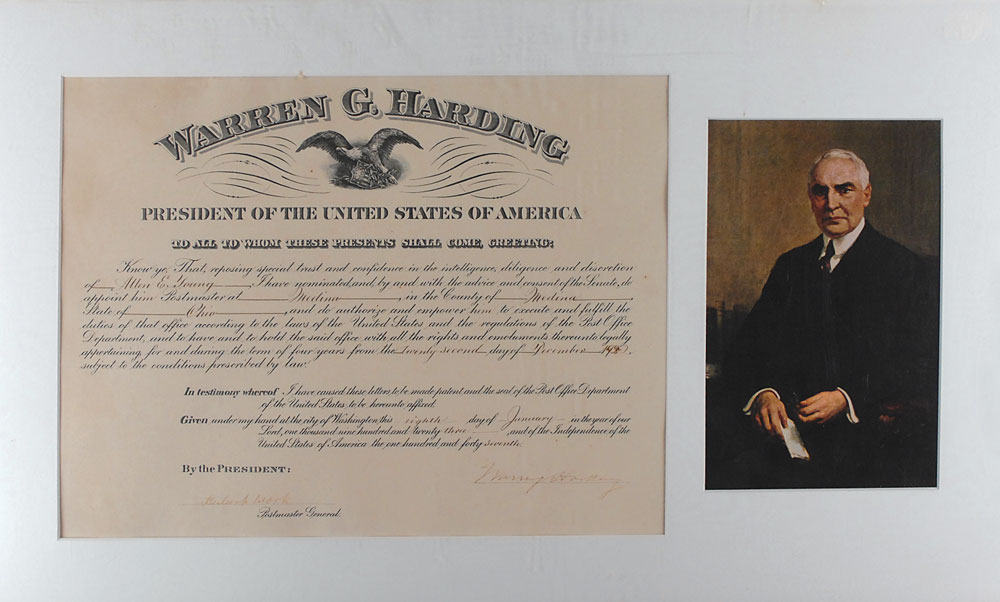 WARREN G. HARDING
PRESIDENT OF THE UNITED STATES OF AMERICA
TO ALL TO WHOM THESE PRESENTS SHALL COME, GREETING:
Know ye, That, reposing special trust and confidence in the intelligence, diligence and discretion
of Allen E. Young, I have nominated, and, by and with the advice and consent of the Senate, do
appoint him Postmaster at Medina, in the County of Medina,
State of Ohio, and do authorize and empower him to execute and fulfill the
duties of that office according to the laws of the United States and the regulations of the Post Office
Department, and to have and to hold the said office with all the rights and emoluments thereunto legally
appertaining, for and during the term of four years from the twenty second day of December,
subject to the conditions prescribed by law.
In testimony whereof I have caused these letters to be made patent and the seal of the Post Office Department
of the United States, to be hereunto affixed.
Given under my hand at the city of Washington this eighth day of January in the year of our
Lord, one thousand nine hundred and twenty three, and of the Independence of the
United States of America the one hundred and forty seventh.
By the PRESIDENT:
Warren G Harding
Hubert Work
Postmaster General.